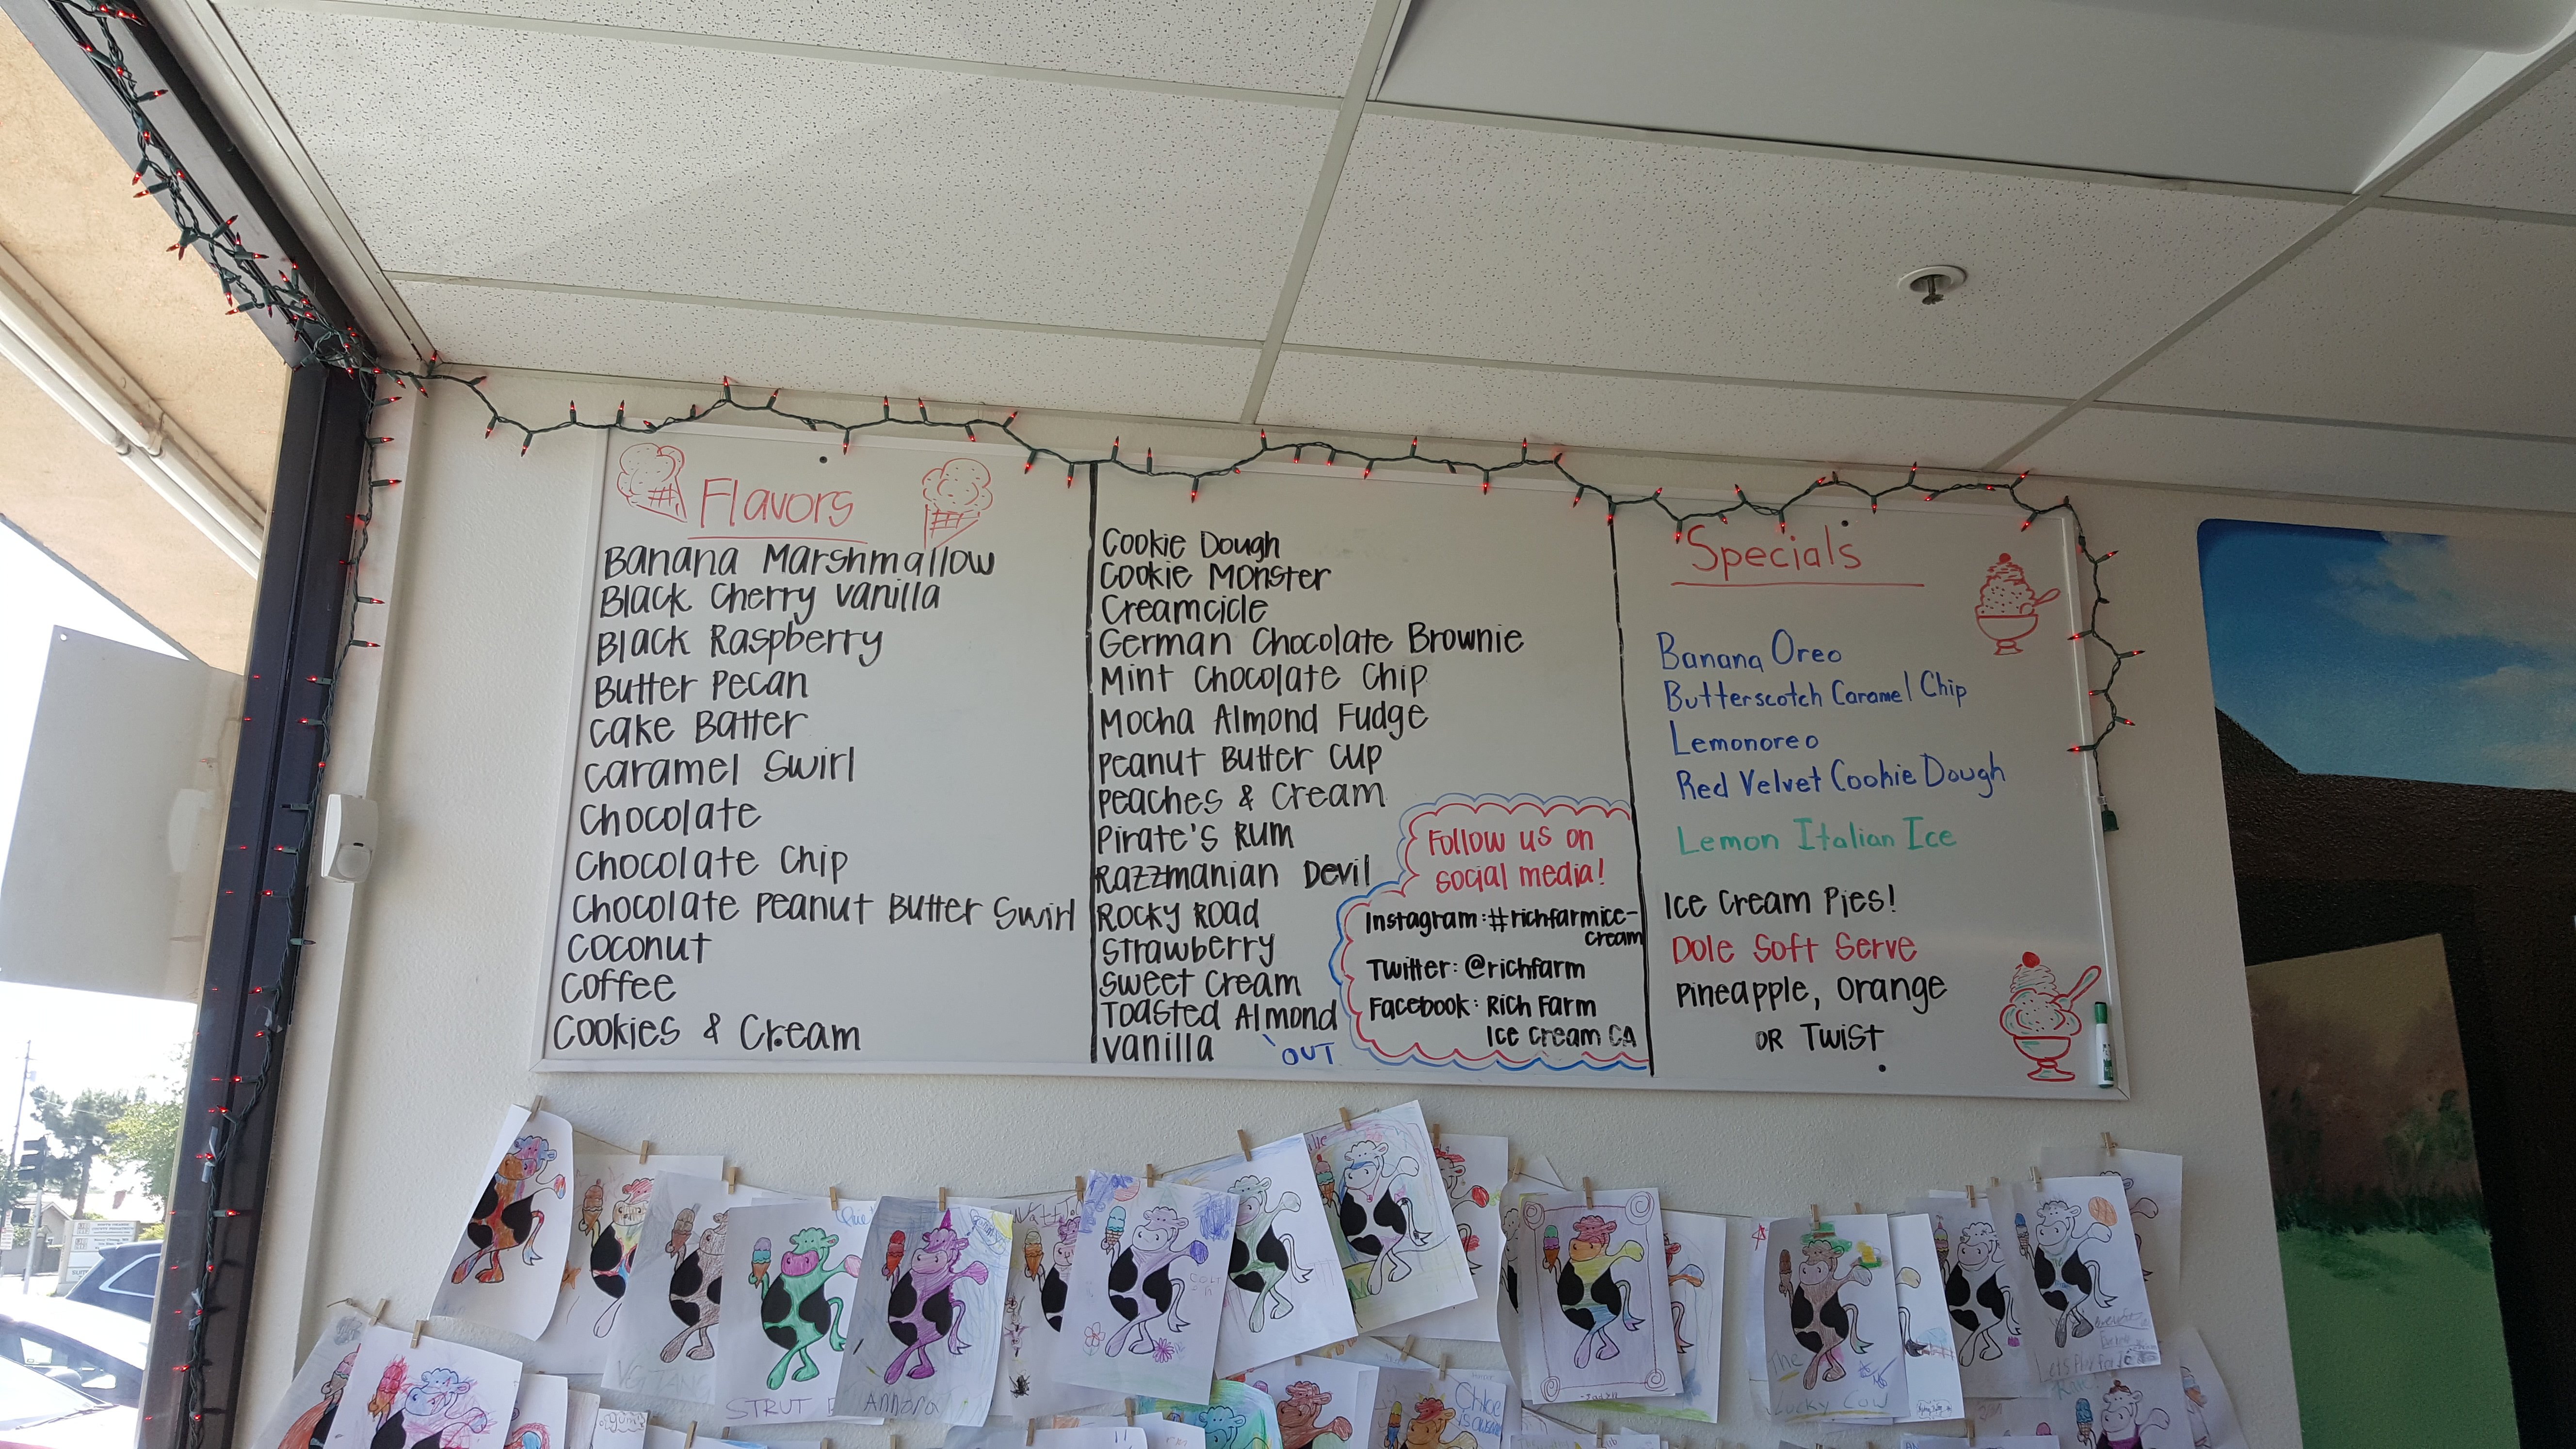 Flavors
Banana Marshmallow
Black Cherry Vanilla
Black Raspberry
Butter Pecan
Cake Batter
Caramel Swirl
Chocolate
Chocolate Chip
Chocolate Peanut Butter Swirl
Coconut
Coffee
Cookies & Cream
Cookie Dough
Cookie Monster
Creamcicle
German Chocolate Brownie
Mint Chocolate Chip
Mocha Almond Fudge
Peanut Butter Cup
Peaches & Cream
Pirate's Rum
Razzmanian Devil
Rocky Road
Strawberry
Sweet Cream
Toasted Almond
Vanilla
OUT
Follow us on
social media!
Instagram: #richfarmice-
cream
Twitter: @richfarm
Facebook: Rich Farm
Ice Cream CA
Specials
Banana Oreo
Butterscotch Caramel Chip
Lemonoreo
Red Velvet Cookie Dough
Lemon Italian Ice
Ice Cream Pies!
Dole Soft Serve
Pineapple, Orange
or Twist
STRUT
Annora
COLT
The
Lucky Cow
Chloe